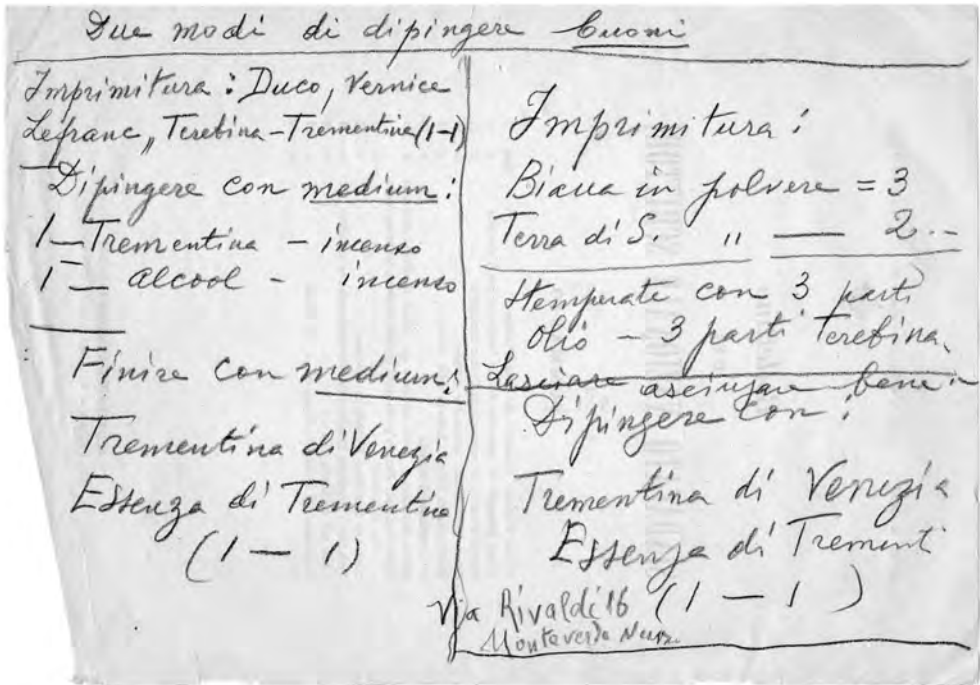 Due modi di dipingere buoni
Imprimitura: Duco, Vernice
Lefranc,, Terebina-Trementina (1-1)
Dipingere con medium:
1 — Trementina - incenso
1 — alcool - incenso
Finire con medium:
Trementina di Venezia
Essenza di Trementina
(1 — 1)
Imprimitura:
Biacca in polvere = 3
Terra di S. " — 2..
Stemperate con 3 parti
olio - 3 parti Terebina.
Lasciare asciugare bene
Dipingere con:
Trementina di Venezia
Essenza di Trementi
(1 — 1)
Via Rivaldi 16
Monteverde